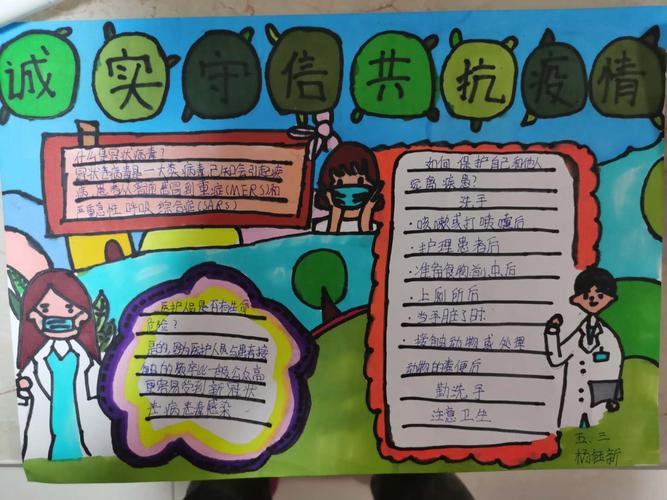 诚实守信共抗疫情
什么是冠状病毒?
冠状病毒是一大类病毒已知会引起疾
病,患者从普通感冒到重症(MERS)和
严重急性呼吸综合症(SARS)
医护人员是否有生命
危险?
是的,因为医护人员与患者接
触的频率比一般公众高
更容易受到新冠状
病毒感染
如何保护自己和他人
远离疾患?
洗手
·咳嗽或打喷嚏后
·护理患者后
·准备食物前,中后
·上厕所后
·当手脏了时
·接触动物或处理
动物的粪便后
勤洗手
注意卫生
五.三
杨钰新